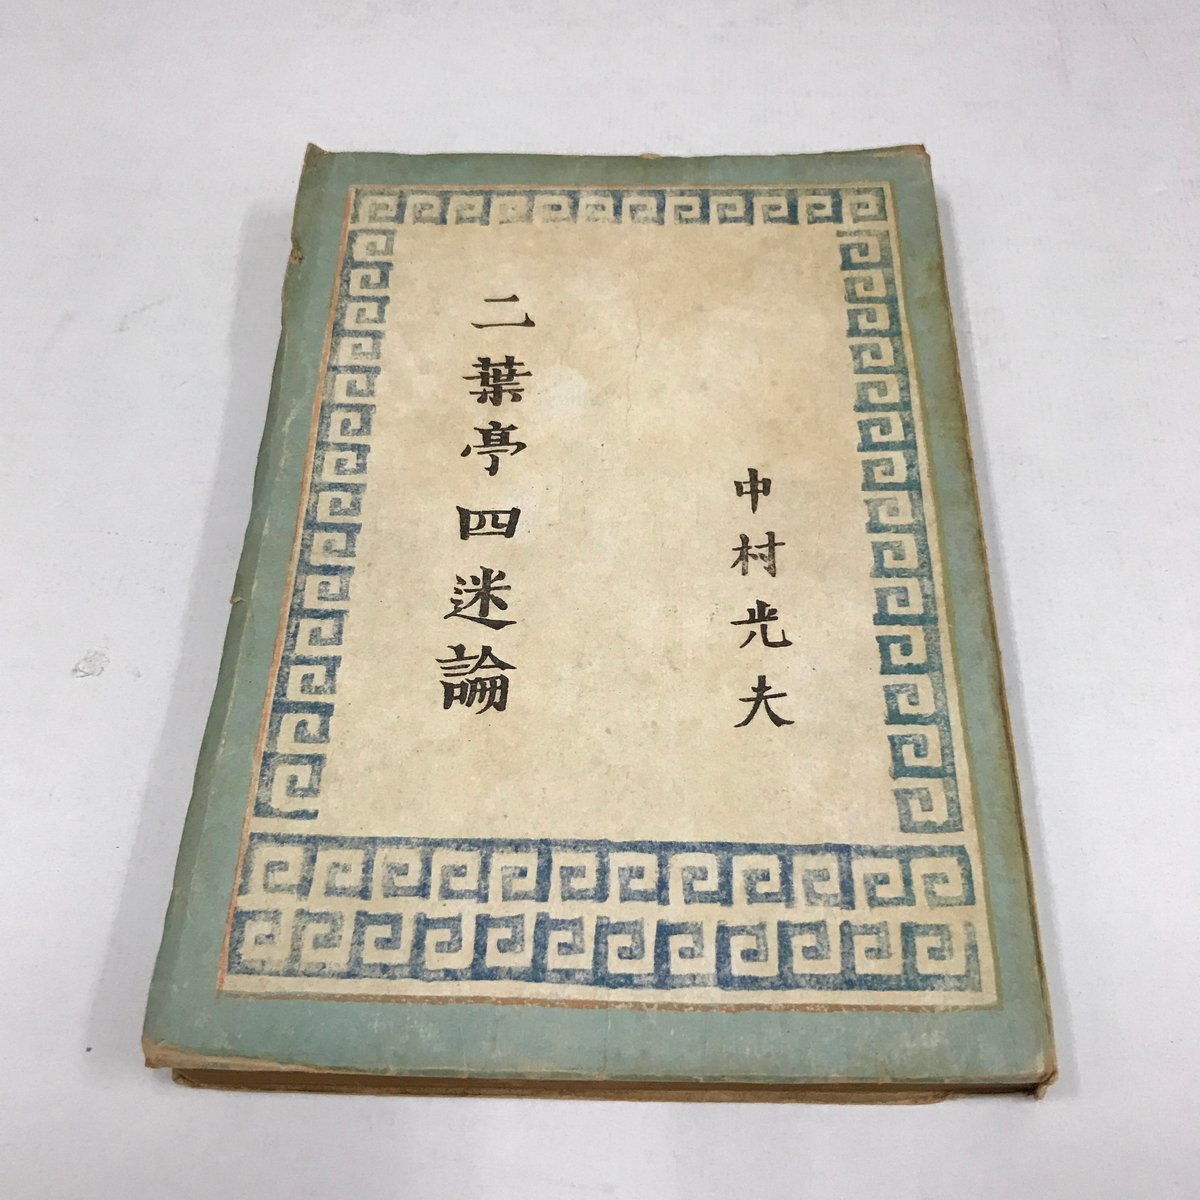 中村光夫
二葉亭四迷論